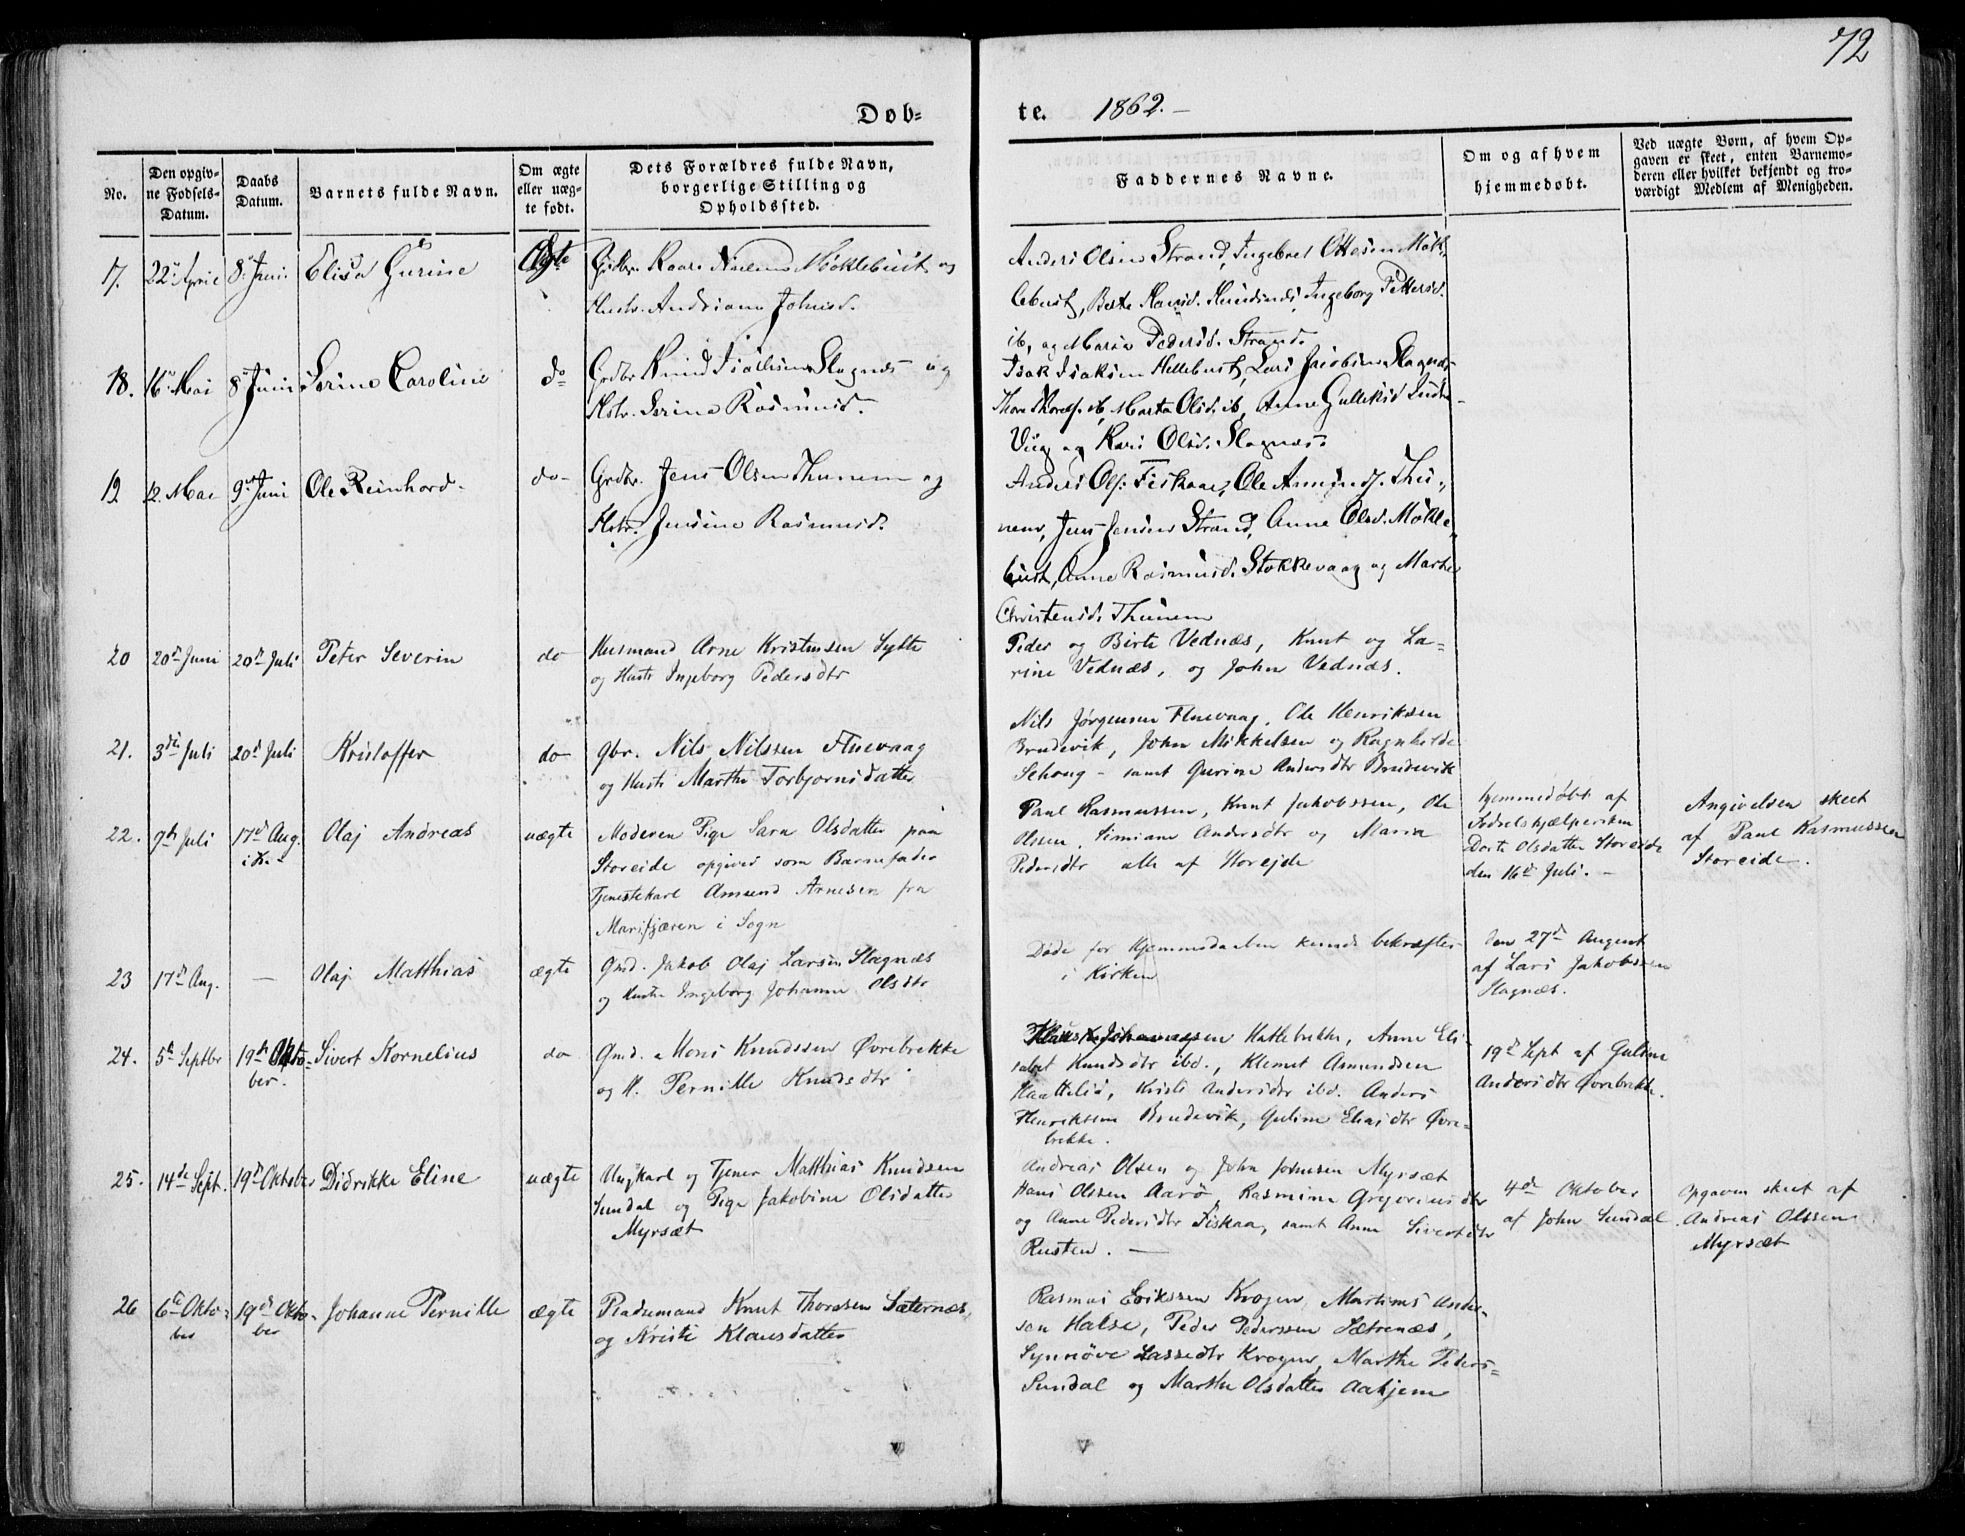 72
Døb-
te. 1862.-
No.
Den opgiv-
ne Fødsels-
Datum.
Daabs
Datum.
Barnets fulde Navn.
Om ægte
eller uæg-
te født.
Dets Forældres fulde Navn,
borgerlige Stilling og
Opholdssted.
Faddernes Navne.
Om og af hvem
hjemmedøbt.
Ved uægte Børn, af hvem Op-
gaven er skeet, enten Barnemo-
deren eller hvilket bekjendt og tro-
værdigt Medlem af Menigheden.
17. 22de April 8de Juni Elisa Gurine Ægte Møklebust og
Hustr. Andriane Johnsd.
Anders Olsen Strand, Ingebret Ottesen Møk-
lebust, Berte Ingeborg Pettersd.
ib, og Maria Pedersd. Strand.
18. 16de Mai 8de Juni Serine Caroline do Grdbr. Knud Isaksen Slagnæs og
Hstr. Serine Rasmusd.
Isak Isaksen Hellebust, Lars Jacobsen Slagnæs,
Thore Thores. ib, Marta Olsd. ib, Anne Gulleksd Indre
Viig og Kari Olsd. Slagnæs.
19 12. Mai 9de Juni Ole Reinhard. do- Grdbr. Jens Olsen Thunem og
Hstr. Jensine Rasmusd.
Anders Ols. Fiskaae, Ole Amunds. Thu-
nem, Jens Jensen Strand, Anne Olsd. Møkle-
bust, Anne Rasmusd. Stokkevaag og Marthe
Christensd. Thunem
20 20de Juni 20de Juli Peter Severin do Husmand Arne Kristensen Sylte
og Hustr Ingeborg Pedersdtr
Peder og Birte Vednæs, Knut og La-
rine Vednæs, og John Vednæs.
21. 3die Juli 20de Juli Kristoffer do Gbr. Nils Nilssen Fluevaag
og Hustr Marthe Torbjørnsdatter
Nils Jørgensen Fluevaag, Ole Henriksen
Brudevik, John Mikkelsen og Ragnhilde
Sehoug - samt Gurine Andersdtr Brudevik
22. 9de Juli 17de Aug. Olaj Andreas uægte Moderen Pige Sara Olsdatter paa
i K.
Storeide opgiver som Barnefader
Tjenestekarl Amund Arnesen fra
Marifjæren i Sogn
Paul Rasmussen, Knut Jakobssen, Ole
Olssen, Simiane Andersdtr og Maria
Pedersdtr alle af Storejde
Hjemmedøbt af
Fødselshjælpersken
Dorte Olsdatter Storeide
den 16de Juli. -
Angivelsen skeet
af Paul Rasmussen
Storeide.
23 17de Aug. - Olaj Matthias ægte Gmd. Jakob Olaj Larsen Slagnæs
og Hustr Ingeborg Johanne Olsdtr
Døde før Hjemmedaaben kunde bekræftes
i Kirken
den 27de August
af Lars Jakobssen
Slagnæs.
24. 5te Septbr 19de Okto-
ber. Sivert Kornelius do Gmd. Mons Knudssen Øvrebrekke
og H. Pernille Knudsdtr
Johannessen Hattebrekke, Anne Eli-
sabet Knudsdtr ibd., Klemet Amundsen
Haattelid, Kristi Andersdtr ibd. Anders
Henriksen Brudevik, Guline Eliasdtr Øvre-
brekke.
19de Sept af Guline
Andersdtr Øvrebrekke.
25. 14de Sept. 19de Oktober Didrikke Eline uægte Ungkarl og Tjener Matthias Knudsen
Sundal og Pige Jakobine Olsdatter
Myrsæt
Andreas Olsen og John Myrsæt
Hans Olssen Aarø, Rasmine Gregoriusdtr
og Anne Pedersdtr Fiskaa, samt Anne Sivertsdtr
Rusten. -
4de Oktober
af John Sundal
Opgaven skeet af
Andreas Olssen
Myrsæt
26 6te Okto-
ber 19de Okto-
ber Johanne Pernille ægte Pladsmand Knut Thoresen Sæternæs,
og Kristi Klausdatter
Rasmus Erikssen Krogen, Martinus Ander-
sen Halse, Peder Pederssen Sætrenæs,
Synnøve Lassedtr Krogen, Marthe Peders-
Sundal og Marthe Olsdatter Aahjem